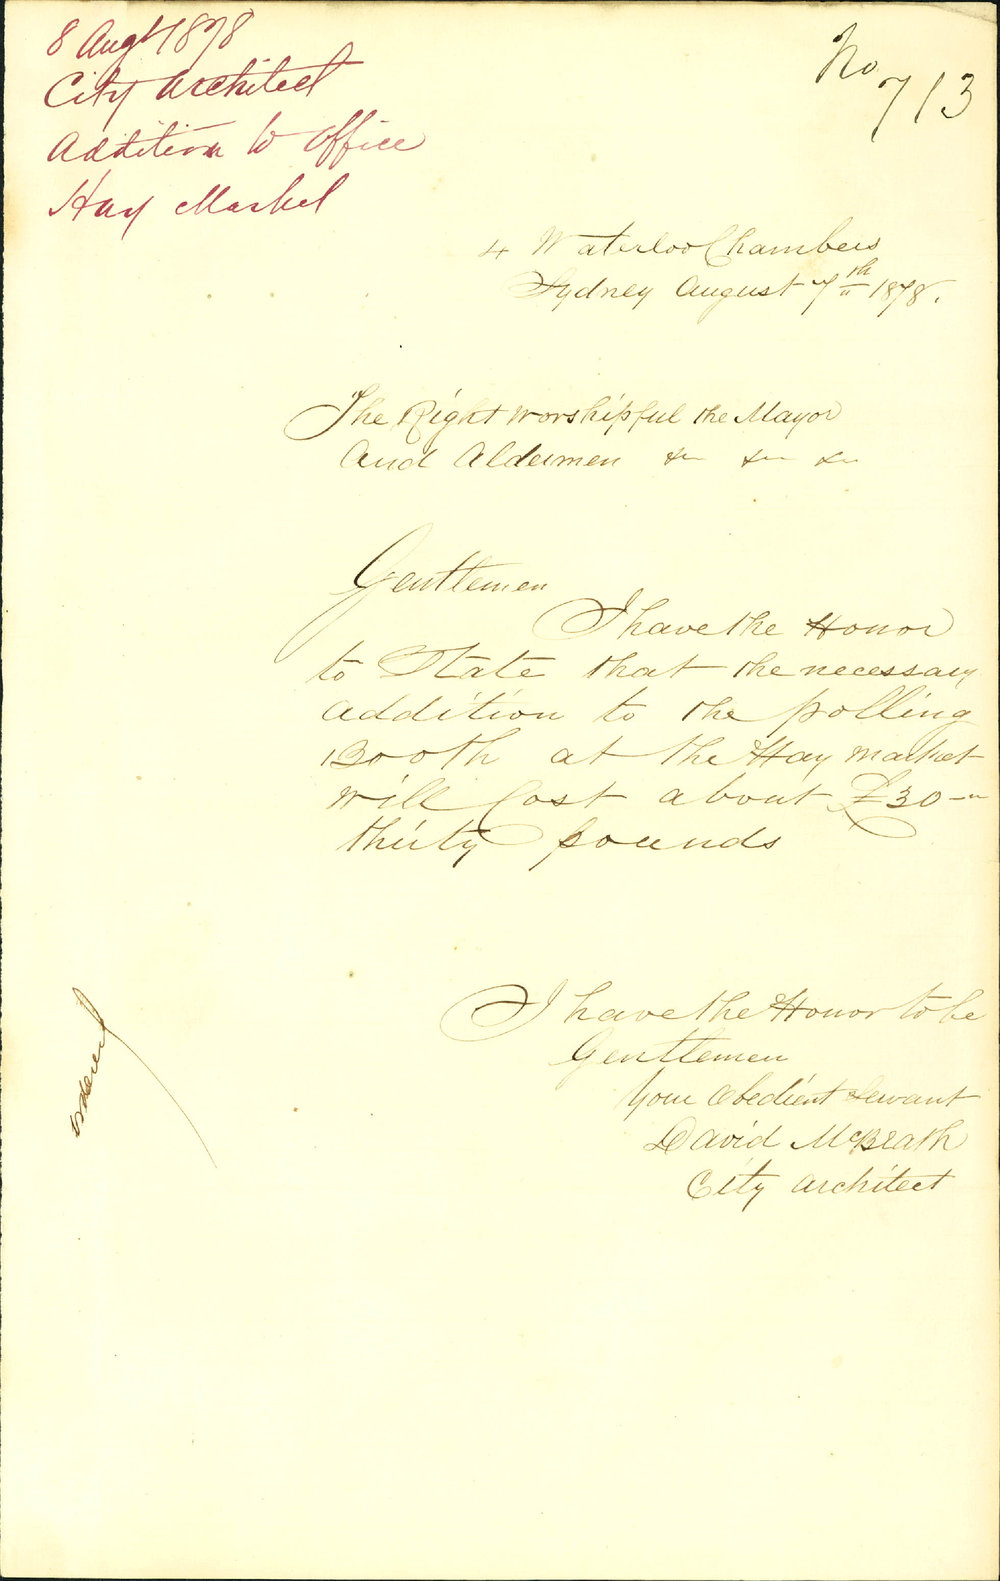 8 Augt 1878
City Architect
Addition to Office
Hay Market
No 713
4 Waterloo Chambers
Sydney August 7th 1878.
The Right Worshipful the Mayor
And Aldermen &c &c &c
Gentlemen
I have the Honor
to State that the necessary
addition to the polling
Booth at the Hay market
will Cost about £30-"
thirty pounds
I have the Honor to be
Gentlemen
Your Obedient Servant
David McBeath
City Architect
ordered